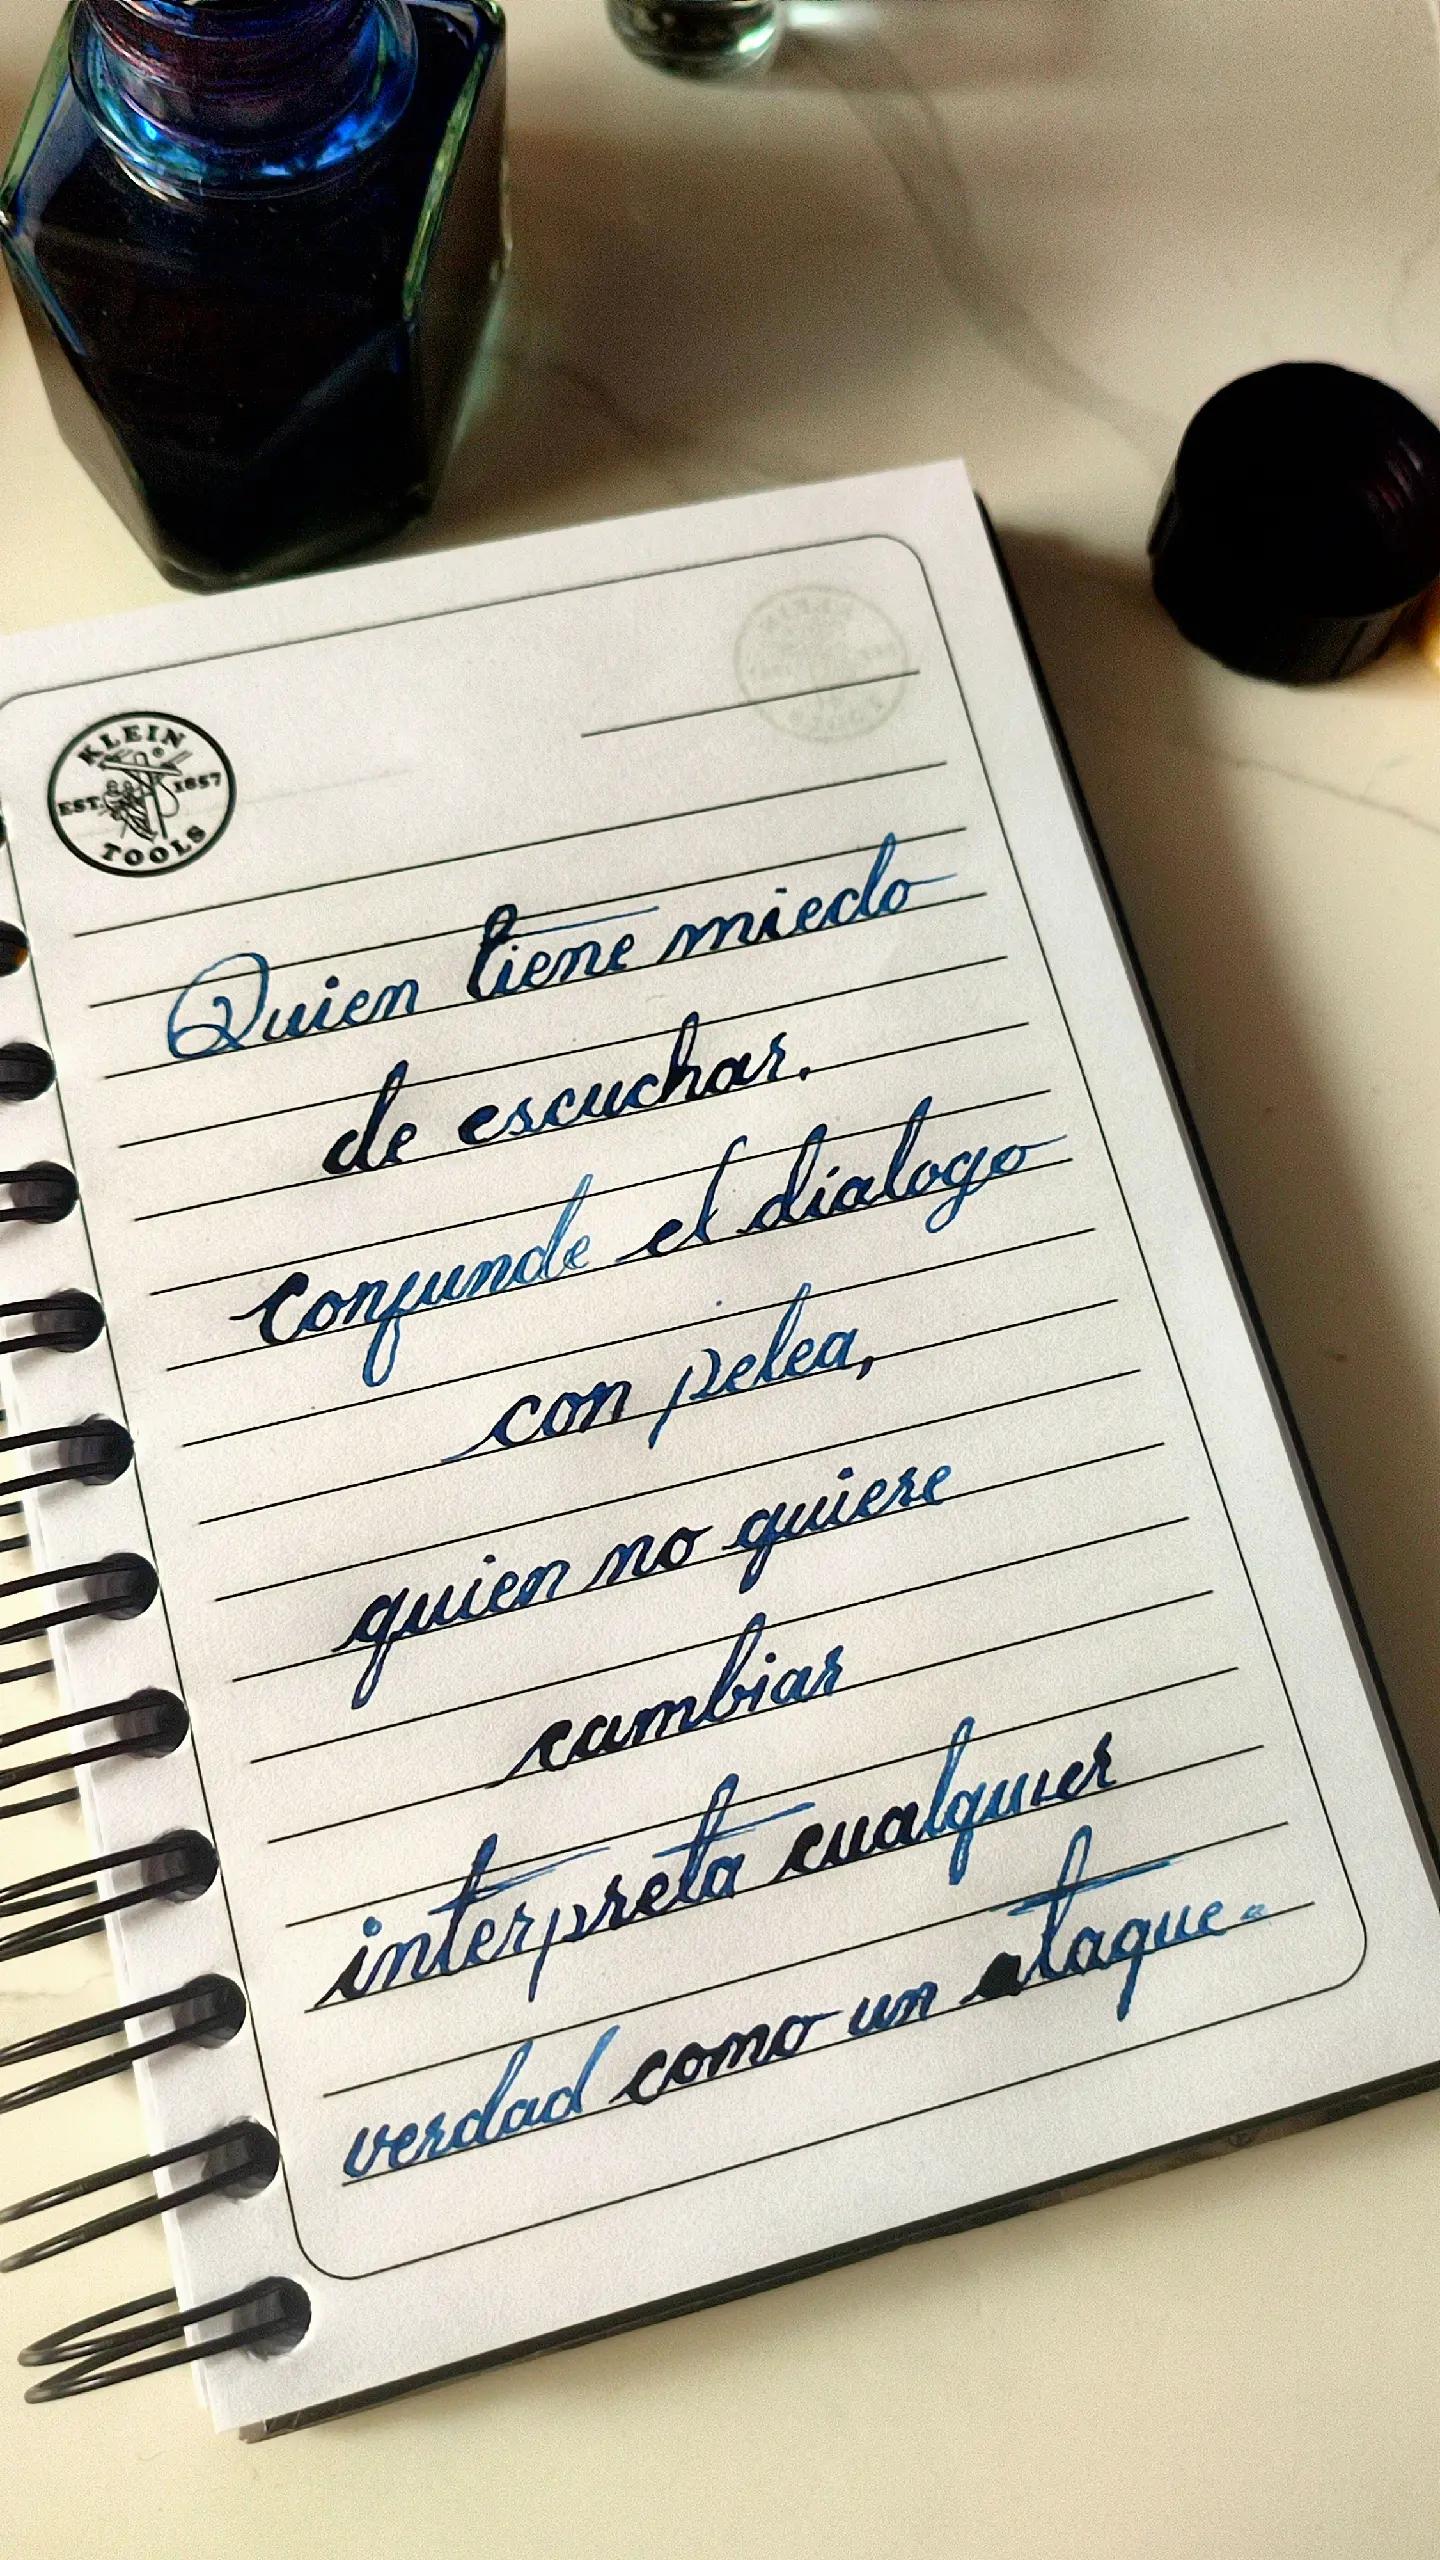 KLEIN
EST. 1857
TOOLS
Quien tiene miedo
de escuchar.
confunde el dialogo
con pelea,
quien no quiere
cambiar
interpreta cualquier
verdad como un ataque.